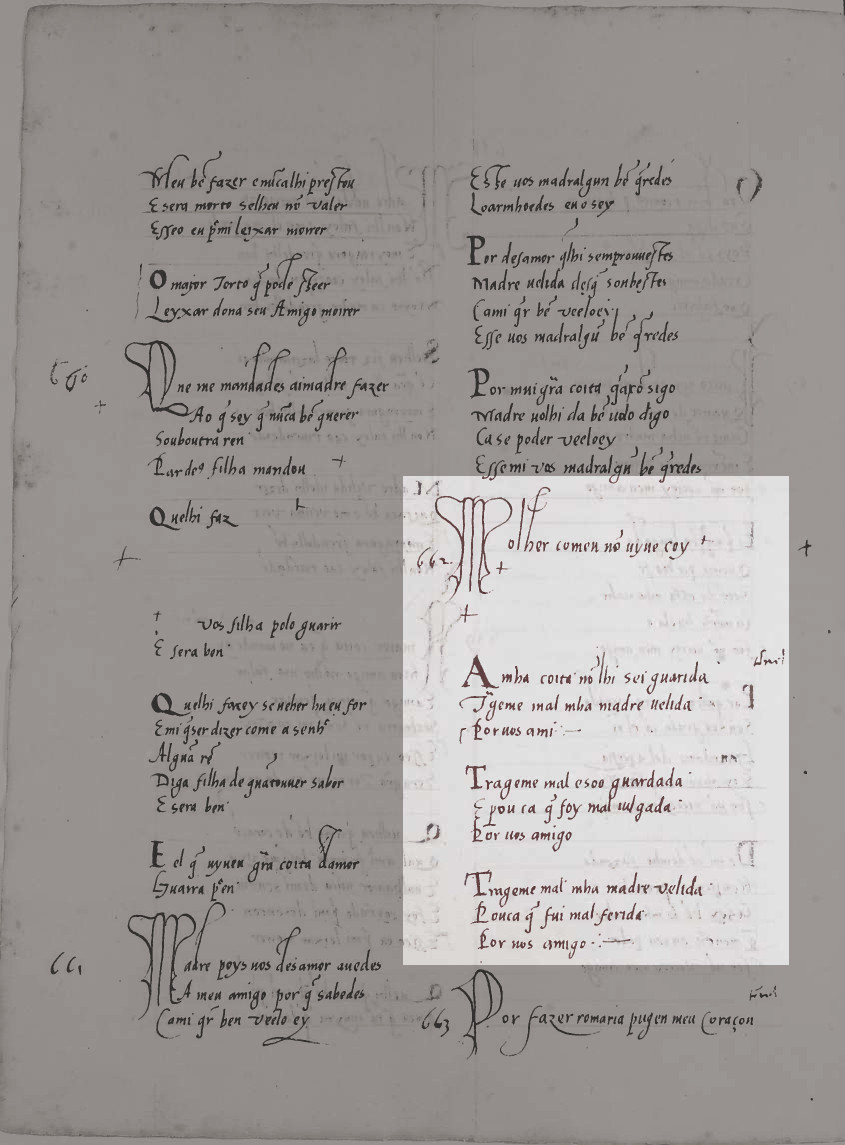 Meu bẽ fazer e nũcalhi prestou
E sera morto selheu nõ valer
Esseo eu p̃mi leyxar moirer
O major Torto q̃ pode seer
Leyxar dona seu Amigo moirer
660
One me mandades aimadre fazer
Ao q̃ sey q̃ nũca bẽ querer
Souboutra ren
Par des filha mandou
Quelhi faz
vos filha polo guarir
E sera ben
Quelhi facey se ueher hu eu for
E mi q̃ser dizer come a senhʳ
Algũa rẽ
Diga filha de
E sera ben
E el q̃ uyueu grã coita damor
Guarra pʳen
661
Madre poys uos desamor auedes
A meu amigo por q̃ sabedes
Cami q̃r ben veelo ey
Esse uos madralgun bẽ q̃redes
Loarmhoedes euo sey
Por desamor q̃lhi semprouuestes
Madre uelida desq̃ sonbestes
Cami q̃r bẽ veeloey
Esse uos madralgũ bẽ q̃redes
Por mui grã coita
Madre uolhi da bẽ uolo digo
Ca se poder veeloey
Esse mi vos madralgũ bẽ q̃redes
662
Molher comeu nõ uyue coy
Amha coita nõ lhi sei guarida
Tr̃geme mal mha madre uelida
Por uos ami
Trageme mal esoo guardada
E pouca q̃ foy mal iulgada
Por uos amigo
Trageme mal mha madre velida
Pouca q̃ fui mal ferida
Por uos amigo
663
Por fazer romaria pugen meu Coraçon